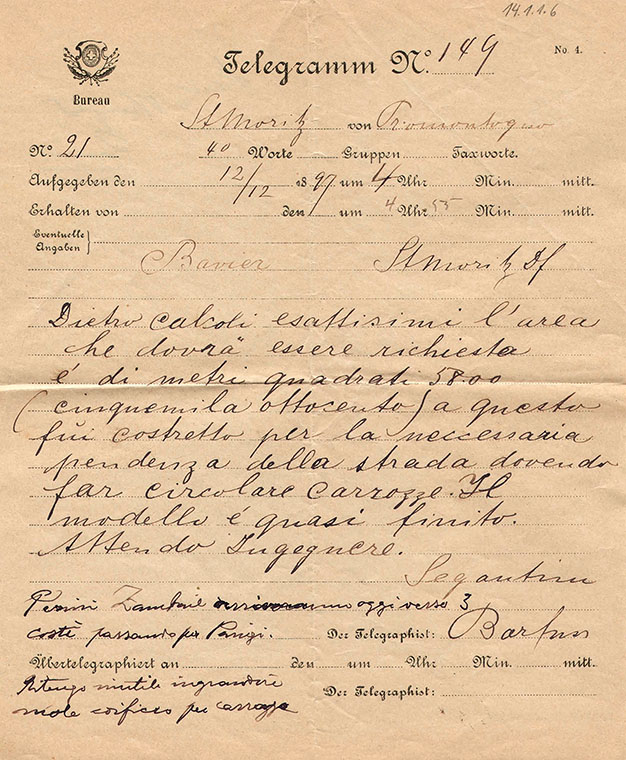 14.1.1.6
Telegramm No. 149
No. 4.
Bureau
St Moritz von Promontogno
No. 21 40 Worte Gruppen Taxworte.
Aufgegeben den 12/12 1897 um 4 Uhr Min. mitt.
Erhalten von den um 4 Uhr 55 Min. mitt.
Eventuelle
Angaben
Bavier St Moritz Df
Dietro calcoli esattisimi l'area
che dovrà essere richiesta
é di metri quadrati 58.00
(cinquemila ottocento) a questo
fui costretto per la neccessaria
pendenza della strada dovendo
far circolare carrozze. Il
modello é quasi finito.
Attendo Ingegnere.
Segantini
oggi verso 3
costì passando per Parigi. Der Telegraphist:
Übertelegraphiert an den um Uhr Min. mitt.
Ritengo inutile ingrandire
Der Telegraphist:
mole edificio per